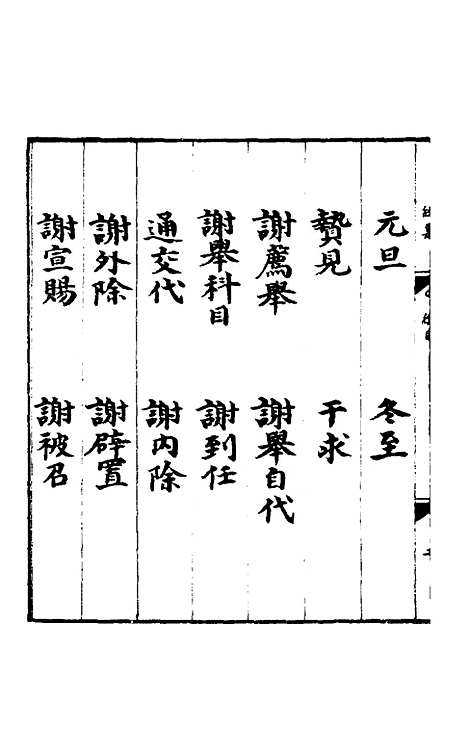 元旦　冬至
贄見　干求
謝薦舉　謝舉自代
謝舉科目　謝到任
通交代　謝內除
謝外除　謝辟置
謝宣賜　謝被召